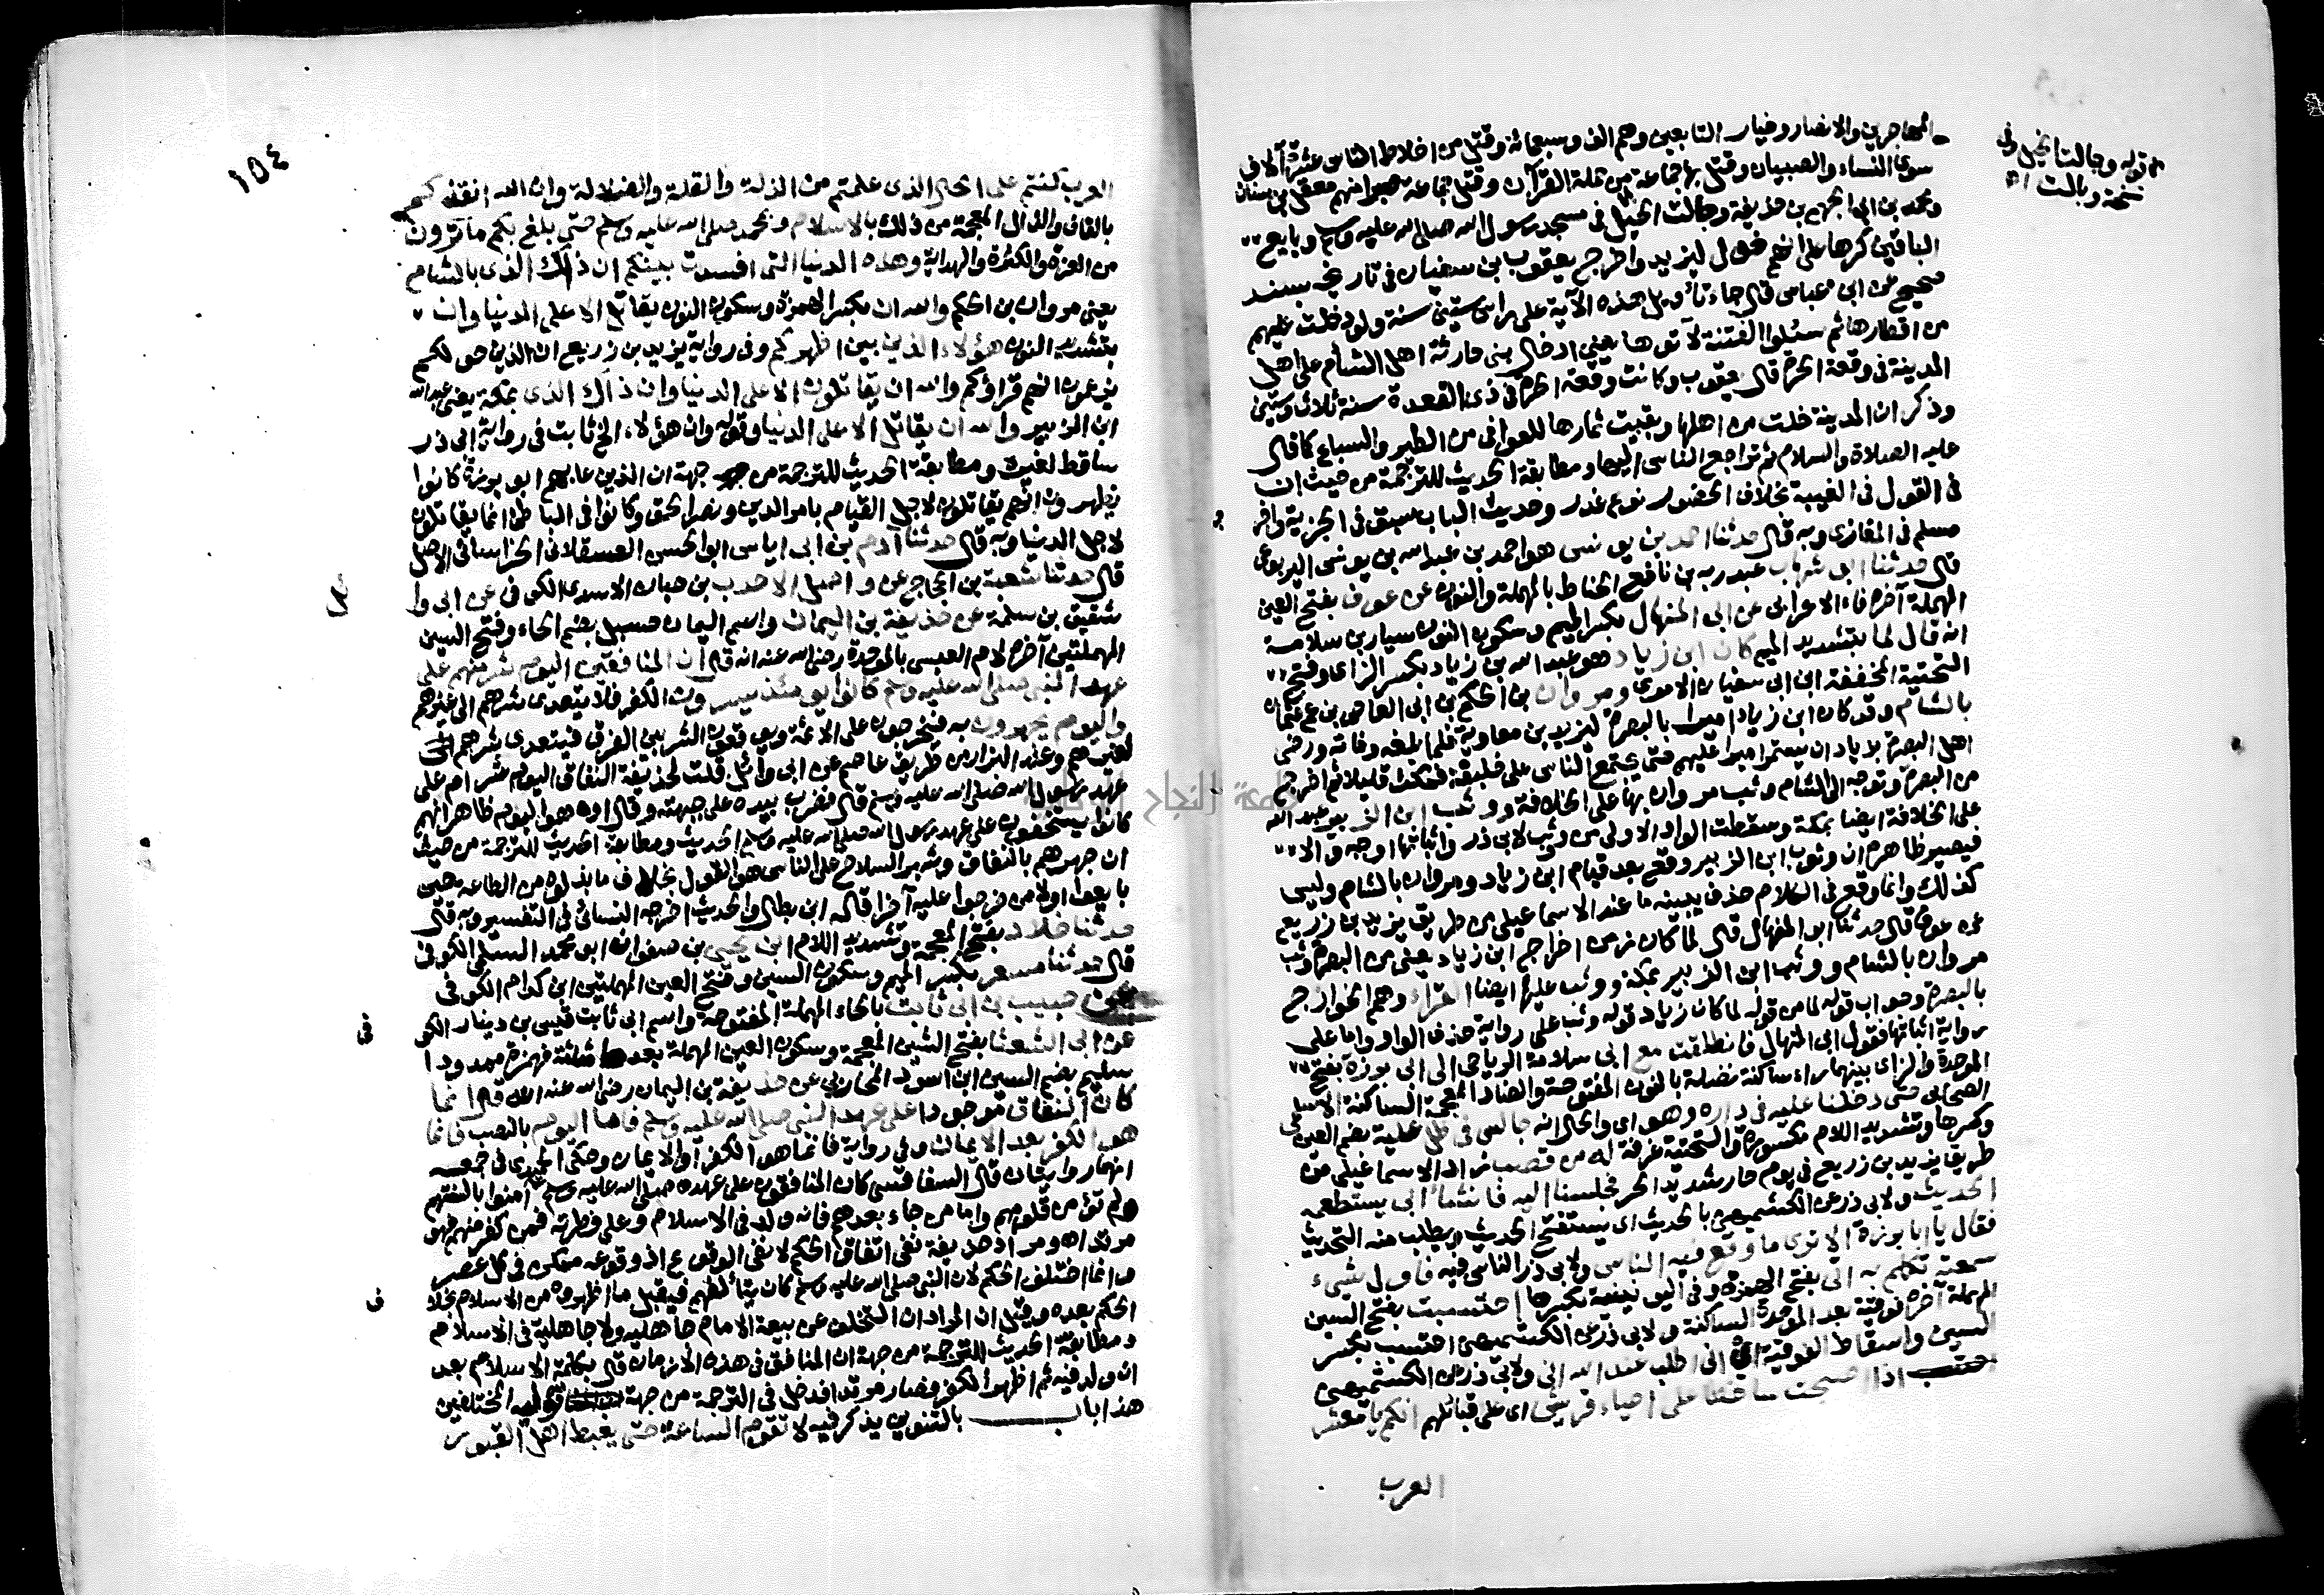 المهاجرين والانصار وخيار التابعين وهم الف وسبعمائة وقتل من اخلاط الناس عشرة آلاف
سوى النساء والصبيان وقتل بها جماعة من حملة القرآن وقتل جماعة صبرا منهم معقل بن سنان
ومحمد بن ابي الجهم بن حذيفة وجالت الخيل في مسجد رسول الله صلى الله عليه وسلم وبايع
الباقين كرها على انهم خول ليزيد واخرج يعقوب بن سفيان في تاريخه بسند
صحيح عن ابن عباس قال جاء تأويل هذه الآية على راس ستين سنة ولو دخلت عليهم
من اقطارها ثم سئلوا الفتنة لآتوها يعني ادخال بني حارثة اهل الشأم على اهل
المدينة في وقعة الحرة قال يعقوب وكانت وقعة الحرة في ذي القعدة سنة ثلاث وستين
وذكر ان المدينة خلت من اهلها وبقيت ثمارها للعوافي من الطير والسباع كما قال
عليه الصلاة والسلام ثم تراجع الناس اليها ومطابقة الحديث للترجمة من حيث ان
في القول في الغيبة بخلاف الحضور نوع غدر وحديث الباب سبق في الجزية واخر
مسلم في المغازي وبه قال حدثنا احمد بن يونس هو احمد بن عبد الله بن يونس اليربوعي
قال حدثنا ابو شهاب عبد ربه بن نافع الحناط بالمهملة والنون عن عوف بفتح العين
المهملة آخره فاء الاعرابي عن ابي المنهال بكسر الميم وسكون النون سيار بن سلامة
انه قال لما بتشديد الميم كان ابن زياد هو عبد الله بن زياد بكسر الزاي وفتح
التحتية المخففة ابن ابي سفيان الاموي ومروان بن الحكم بن ابي العاص بن عم عثمان
بالشام وقد كان ابن زياد اميرا بالبصرة ليزيد بن معاوية فلما بلغه وفاته ورضي
اهل البصرة بلا ياد ان يستمر اميرا عليهم حتى يجتمع الناس على خليفة فمكث قليلا ثم اخرج
من البصرة وتوجه الى الشام وثب مروان بها على الخلافة ووثب ابن الزبير عبد الله
على الخلافة ايضا بمكة وسقطت الواو الاولى من وثب لابي ذر واثباتها اوجه والا
فيصير ظاهره ان وثوب ابن الزبير وقع بعد قيام ابن زياد ومروان بالشام وليس
كذلك وانما وقع في الكلام حذف يبينه ما عند الاسماعيلي من طريق يزيد بن زريع
عن عوف قال حدثنا ابو المنهال قال لما كان زمن اخراج ابن زياد يعني من البصرة وثب
مروان بالشام ووثب ابن الزبير بمكة ووثب عليها ايضا القراء وهم الخوارج
بالبصرة وجواب قوله لما من قوله لما كان زياد قوله وثب على رواية حذف الواو واما على
رواية اثباتها فقول ابي المنهال فانطلقت مع ابي سلامة الرياحي الى ابي برزة بفتح
الموحدة والزاي بينهما راء ساكنة نضلة بالنون المفتوحة والضاد المعجمة الساكنة الاسلمي
الصحابي حتى دخلنا عليه في داره وهو اي والحال انه جالس في ظل علية بضم العين
وكسرها وتشديد اللام مكسورة والتحتية غرفة له من قصب زاد الاسماعيلي من
طريق يزيد بن زريع في يوم حار شديد الحر فجلسنا اليه فانشأ ابي يستطعمه
الحديث ولابي ذر عن الكشميهني بالحديث اي يستفتح الحديث ويطلب منه التحديث
فقال يا ابا برزة الا ترى ما وقع فيه الناس ولابي ذر الناس فيه فاول شيء
سمعته تكلم به اني بفتح الهمزة وفي اليونينية بكسرها احتسبت بفتح السين
المهملة آخره فوقية بعد الموحدة الساكنة ولابي ذر عن الكشميهني احتسب بكسر
السين واسقاط الفوقية اي اني اطلب عند الله اني ولابي ذر عن الكشميهني
اذ اصبحت ساخطا على احياء قريش اي على قبائلهم انكم يا معشر
العرب
قوله وجالت الخيل في
نسخة وبالت اه
١٥٤
العرب كنتم على الحال الذي علمتم من الذلة والقلة والضلالة وان الله انقذكم
بالقاف والذال المعجمة من ذلك بالاسلام وبمحمد صلى الله عليه وسلم حتى بلغ بكم ما ترون
من العزة والكثرة والهداية وهذه الدنيا التي افسدت بينكم ان ذلك الذي بالشام
يعني مروان بن الحكم والله ان بكسر الهمزة وسكون النون يقاتل الا على الدنيا وان
بتشديد النون هؤلاء الذين بين اظهركم وفي رواية يزيد بن زريع ان الذين حولكم
يزعمون انهم قراؤكم والله ان يقاتلون الا على الدنيا وان ذاك الذي بمكة يعني عبد الله
ابن الزبير والله ان يقاتل الا على الدنيا وقوله وان هؤلاء الخ ثابت في رواية ابي ذر
ساقط لغيره ومطابقة الحديث للترجمة من جهة ان الذين عابهم ابو برزة كانوا
يظهرون انهم يقاتلون لاجل القيام بامر الدين ونصر الحق وكانوا في الباطن انما يقاتلون
لاجل الدنيا وبه قال حدثنا آدم بن ابي اياس ابو الحسن العسقلاني الخراساني الاصل
قال حدثنا شعبة بن الحجاج عن واصل الاحدب بن حبان الاسدي الكوفي عن ابي وا
شقيق بن سلمة عن حذيفة بن اليمان واسم اليمان حسيل بضم الحاء وفتح السين
المهملتين آخره لام العبسي بالموحدة رضي الله عنه انه قال ان المنافقين اليوم شر منهم على
عهد النبي صلى الله عليه وسلم كانوا يومئذ يسرون الكفر فلا يتعدى شرهم الى غيرهم
واليوم يجهرون به فيخرجون على الائمة ويوقعون الشر بين الفرق فيتعدى شرهم الى
غيرهم وعند البزار من طريق عاصم عن ابي وائل قلت لحذيفة النفاق اليوم شر ام على
عهد رسول الله صلى الله عليه وسلم قال فضرب بيده على جبهته وقال اوه هو اليوم ظاهر انهم
كانوا يستخفون على عهد رسول الله صلى الله عليه وسلم الحديث ومطابقة الحديث للترجمة من حيث
ان جهرهم بالنفاق وشهر السلاح على الناس هو القول بخلاف ما بذلوه من الطاعة حين
بايعوا اولا من خرجوا عليه آخرا قاله ابن بطال والحديث اخرجه النسائي في التفسير وبه قال
حدثنا خلاد بفتح المعجمة وتشديد اللام ابن يحيى بن صفوان ابو محمد السلمي الكوفي
قال حدثنا مسعر بكسر الميم وسكون السين وفتح العين المهملتين ابن كدام الكوفي
عن حبيب بن ابي ثابت بالحاء المهملة المفتوحة واسم ابي ثابت قيس بن دينار الكو
عن ابي الشعثا بفتح الشين المعجمة وسكون العين المهملة بعدها مثلثة فهمزة ممدودا
سليم بضم السين ابن اسود المحاربي عن حذيفة بن اليمان رضي الله عنه انه قال انما
كان النفاق موجودا على عهد النبي صلى الله عليه وسلم فاما اليوم بالنصب فانما
هو الكفر بعد الايمان وفي رواية فانما هو الكفر او الايمان وحكى الحميدي في جمعه
انهما روايتان قال السفاقسي كان المنافقون على عهده صلى الله عليه وسلم آمنوا بالسنتهم
ولم تؤمن قلوبهم واما من جاء بعدهم فانه ولد في الاسلام وعلى فطرته فمن كفر منهم فهو
مرتد اه ومراد حذيفة نفي اتفاق الحكم لا نفي الوقوع اذ وقوعه ممكن في كل عصر
وانما اختلف الحكم لان النبي صلى الله عليه وسلم كان يتألفهم فيقبل ما اظهروه من الاسلام بخلا
الحكم بعده وقيل ان المراد ان التخلف عن بيعة الامام جاهلية ولا جاهلية في الاسلام
ومطابقة الحديث للترجمة من جهة ان المنافق في هذه الازمان قال بكلمة الاسلام بعد
ان ولد فيه ثم اظهر الكفر فصار مرتدا فدخل في الترجمة من جهة قوليه المختلفين
هذا باب بالتنوين يذكر فيه لا تقوم الساعة حتى يغبط اهل القبور
ئل
في
ف